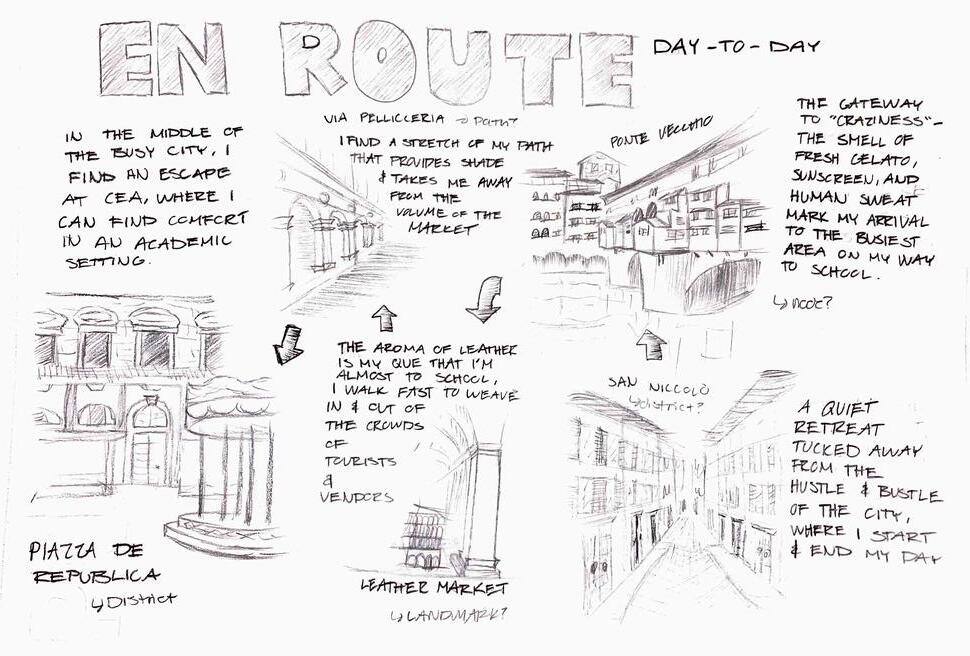 EN ROUTE
DAY-TO-DAY
IN THE MIDDLE OF
THE BUSY CITY, I
FIND AN ESCAPE
AT CEA, WHERE I
CAN FIND COMFORT
IN AN ACADEMIC
SETTING.
VIA PELLICCERIA → PATH?
I FIND A STRETCH OF MY PATH
THAT PROVIDES SHADE
& TAKES ME AWAY
FROM THE
VOLUME OF THE
MARKET
PONTE VECCHIO
THE GATEWAY
TO "CRAZINESS"-
THE SMELL OF
FRESH GELATO,
SUNSCREEN, AND
HUMAN SWEAT
MARK MY ARRIVAL
TO THE BUSIEST
AREA ON MY WAY
TO SCHOOL.
↳ node?
THE AROMA OF LEATHER
IS MY QUE THAT I'M
ALMOST TO SCHOOL,
I WALK FAST TO WEAVE
IN & OUT OF
THE CROWDS
OF
TOURISTS
&
VENDORS
LEATHER MARKET
↳ LANDMARK?
SAN NICCOLÒ
↳ district?
A QUIET
RETREAT
TUCKED AWAY
FROM THE
HUSTLE & BUSTLE
OF THE CITY,
WHERE I START
& END MY DAY
PIAZZA DE
REPUBLICA
↳ District